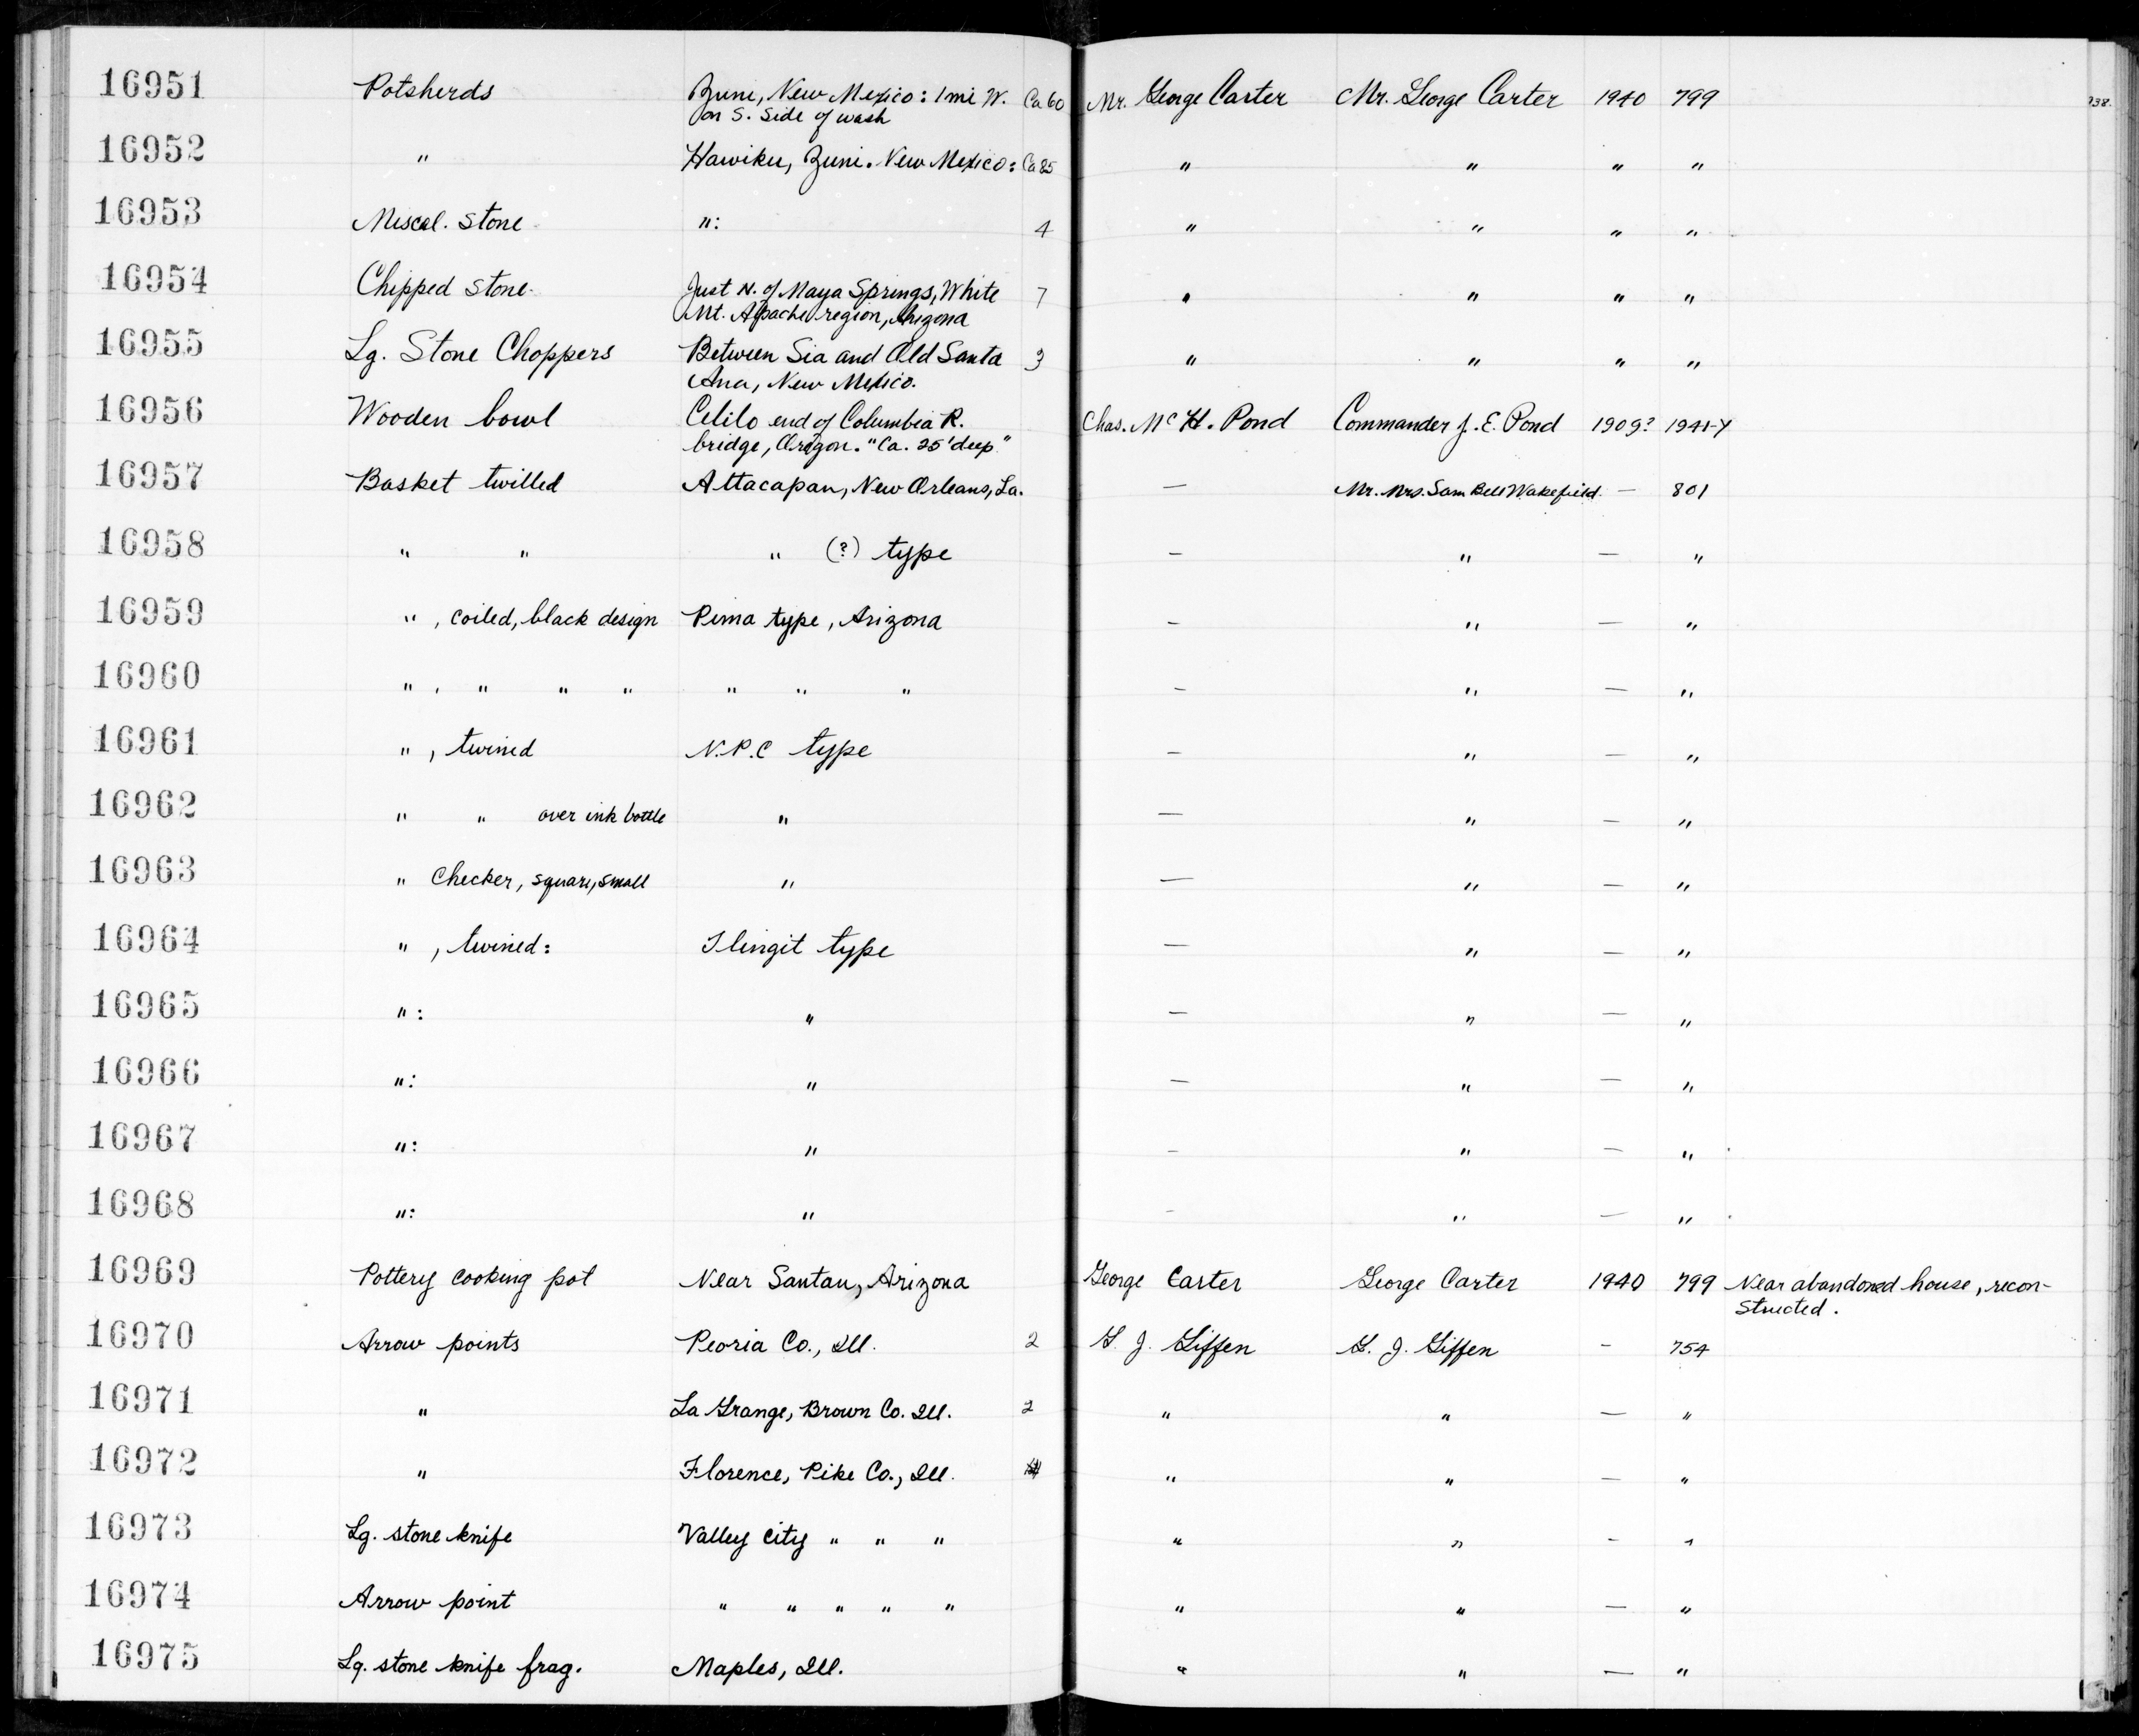 16951 Potsherds Zuni, New Mexico: 1 mi W. Ca 60 Mr. George Carter Mr. George Carter 1940 799
on S. Side of wash
16952 " Hawiku, Zuni. New Mexico: Ca 85 " " " "
16953 Miscel. Stone ": 4 " " " "
16954 Chipped Stone Just N. of Maya Springs, White 7 " " " "
Mt. Apache region, Arizona
16955 Lg. Stone Choppers Between Sia and Old Santa 3 " " " "
Ana, New Mexico.
16956 Wooden bowl Celilo end of Columbia R. Chas. McH. Pond Commander J. E. Pond 1909? 1941-Y
bridge, Oregon. "Ca. 25' deep"
16957 Basket twilled Attacapan, New Orleans, La. — Mr. Mrs. Sam Bell Wakefield — 801
16958 " " " (?) type — " — "
16959 ", coiled, black design Pima type, Arizona — " — "
16960 ", " " " " " " — " — "
16961 ", twined N.P.C type — " — "
16962 " " over ink bottle " — " — "
16963 " Checker, square, small " — " — "
16964 ", twined: Tlingit type — " — "
16965 ": " — " — "
16966 ": " — " — "
16967 ": " — " — "
16968 ": " — " — "
16969 Pottery cooking pot Near Santan, Arizona George Carter George Carter 1940 799 Near abandoned house, recon-
structed.
16970 Arrow points Peoria Co., Ill. 2 G. J. Giffen G. J. Giffen — 754
16971 " La Grange, Brown Co. Ill. 2 " " — "
16972 " Florence, Pike Co., Ill. " " — "
16973 Lg. stone knife Valley City " " " " " — "
16974 Arrow point " " " " " " " — "
16975 Lg. stone knife frag. Maples, Ill. " " — "